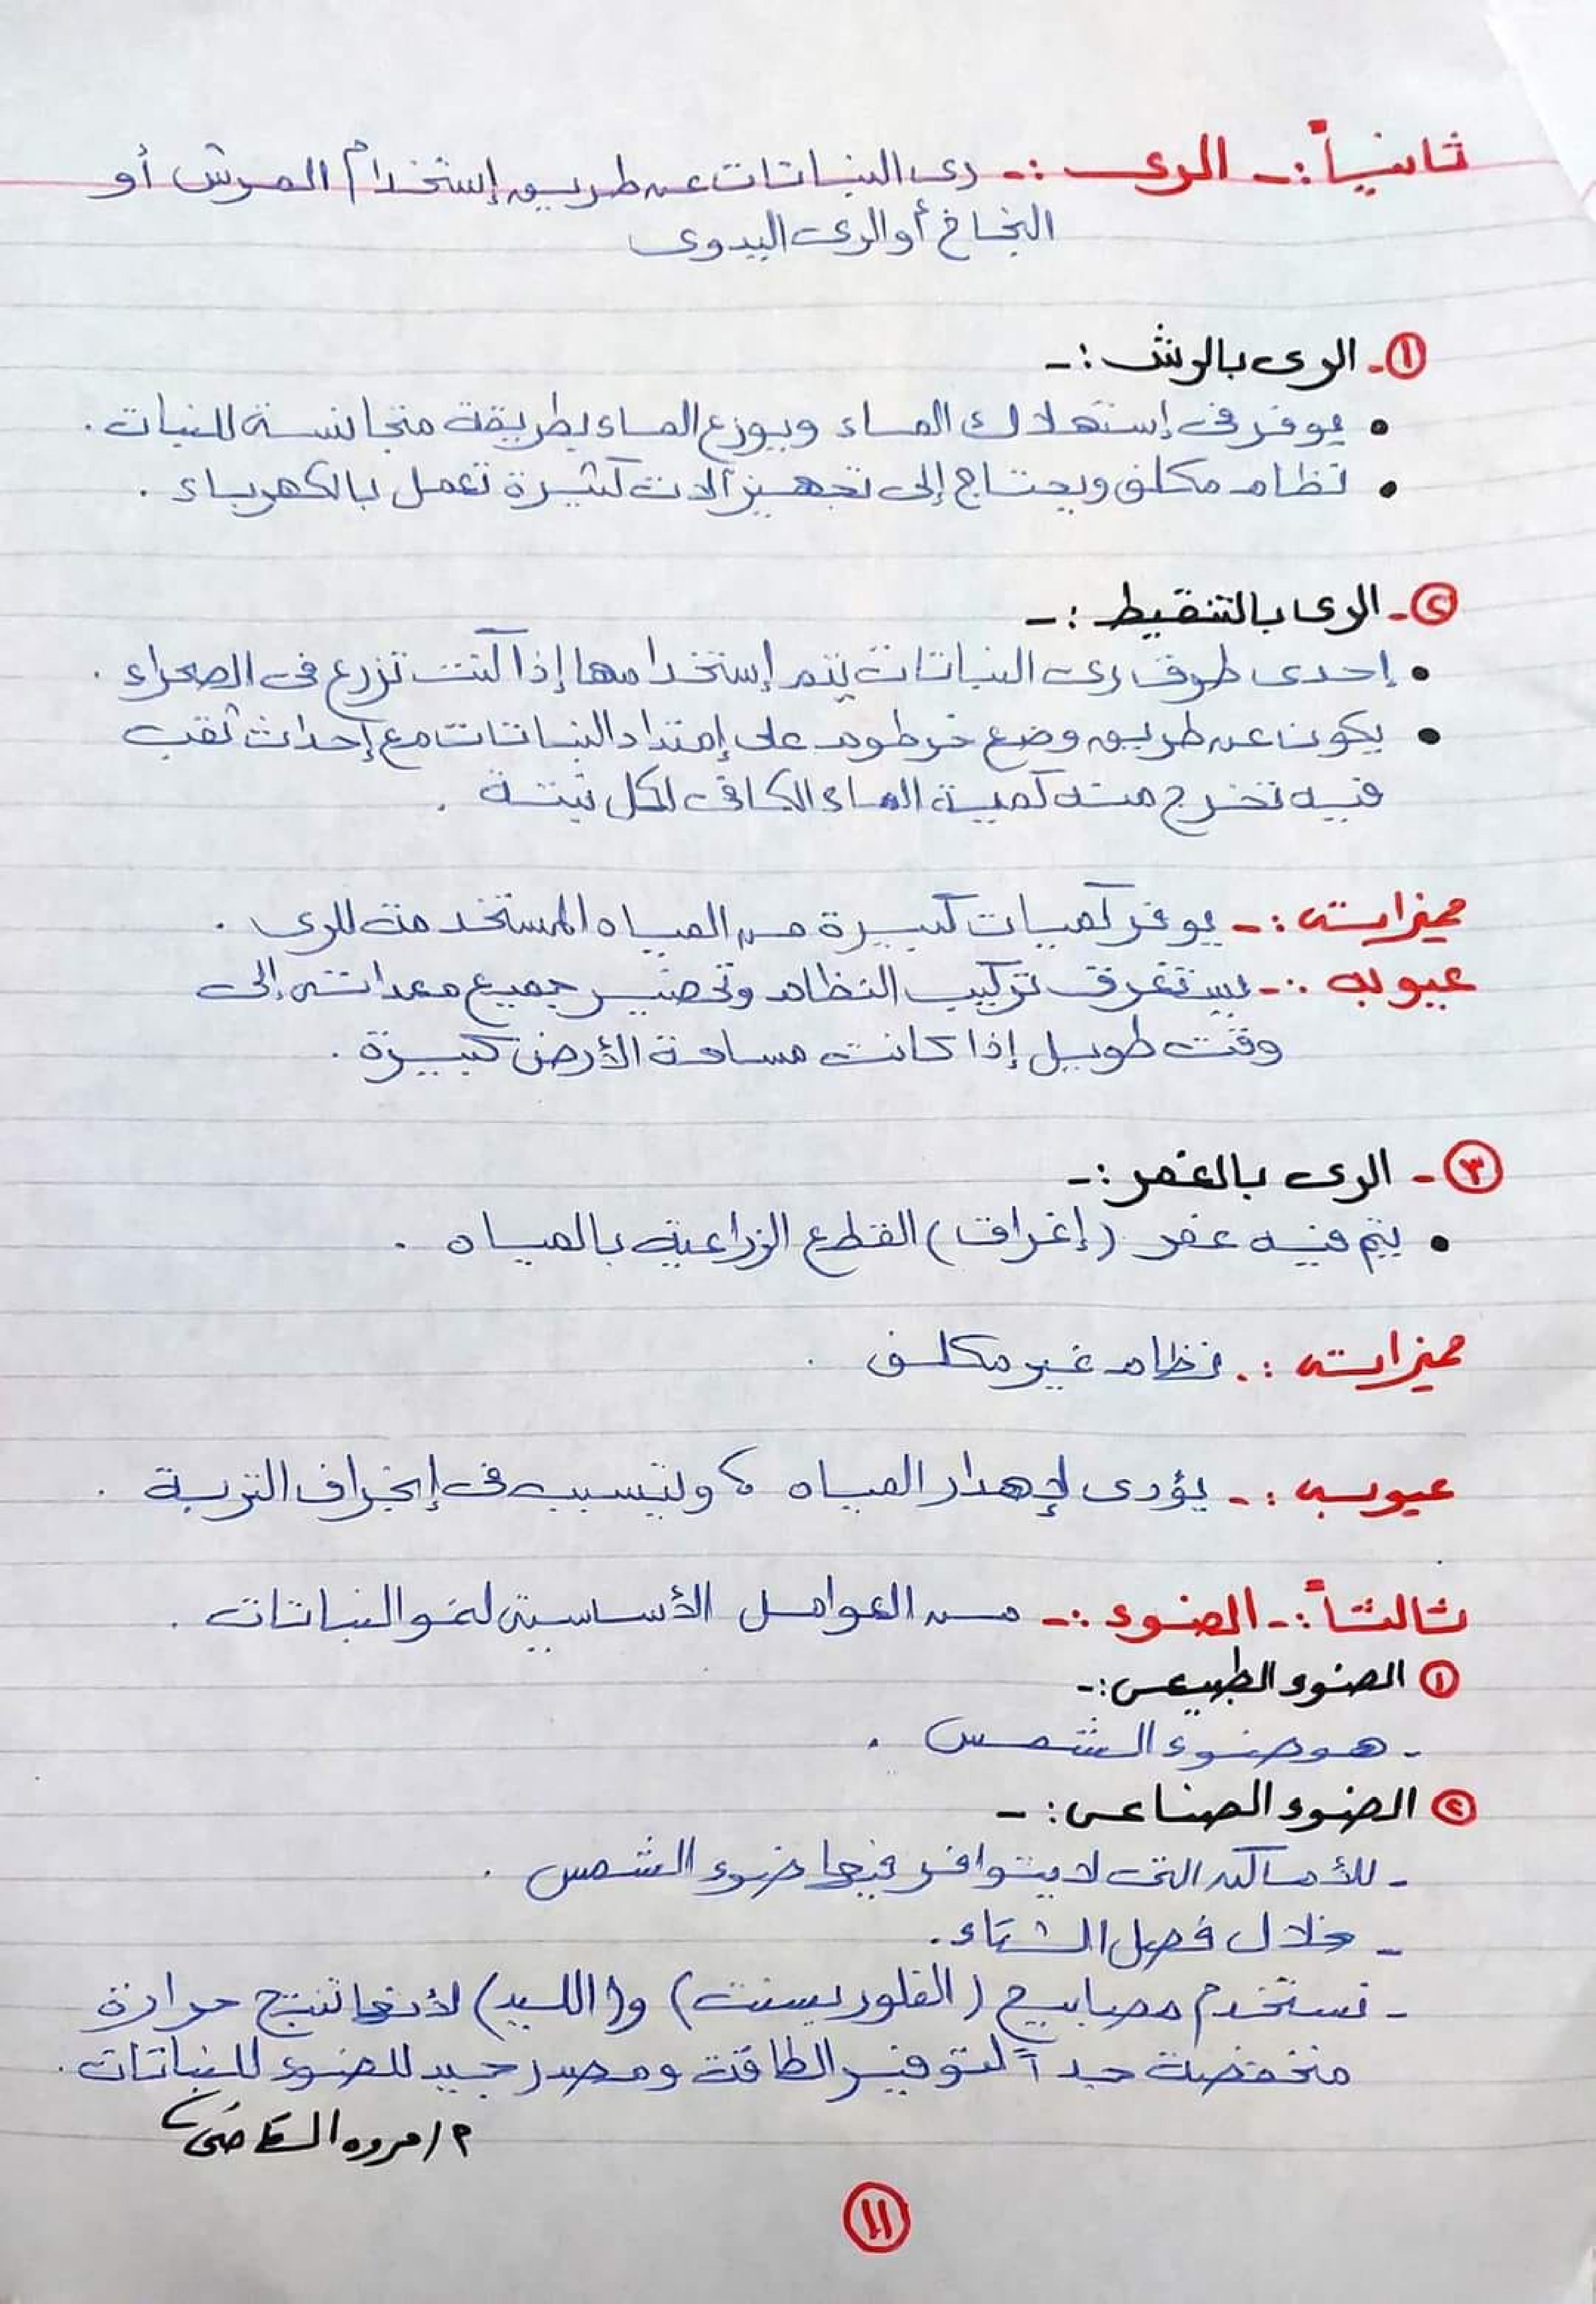 ثانياً :- الرى :- رى النباتات عن طريق إستخدام المرش أو
البخاخ أو الرى اليدوى
١- الرى بالرش :-
• يوفر فى إستهلاك الماء ويوزع الماء بطريقة متجانسة للنبات .
• نظام مكلف ويحتاج إلى تجهيز آلات كثيرة تعمل بالكهرباء .
٢- الرى بالتنقيط :-
• إحدى طرق رى النباتات يتم إستخدامها إذا كنت تزرع فى الصحراء .
• يكون عن طريق وضع خرطوم على إمتداد النباتات مع إحداث ثقب
فيه تخرج منه كمية الماء الكافى لكل نبتة .
مميزاته :- يوفر كميات كبيرة من المياه المستخدمة للرى .
عيوبه :- يستغرق تركيب النظام وتحضير جميع معداته إلى
وقت طويل إذا كانت مساحة الأرض كبيرة .
٣- الرى بالغمر :-
• يتم فيه غمر (إغراق) القطع الزراعية بالمياه .
مميزاته :. نظام غير مكلف .
عيوبه :- يؤدى لإهدار المياه ، ويتسبب فى إنجراف التربة .
ثالثاً :- الضوء :- من العوامل الأساسية لنمو النباتات .
١ الضوء الطبيعى :-
- هو ضوء الشمس .
٢ الضوء الصناعى :-
- للأماكن التى لا يتوافر فيها ضوء الشمس .
- خلال فصل الشتاء .
- نستخدم مصابيح (الفلوريسنت) و(الليد) لأنها تنتج حرارة
منخفضة جداً لتوفير الطاقة ومصدر جيد للضوء للنباتات .
م/مروه القاضى
١١